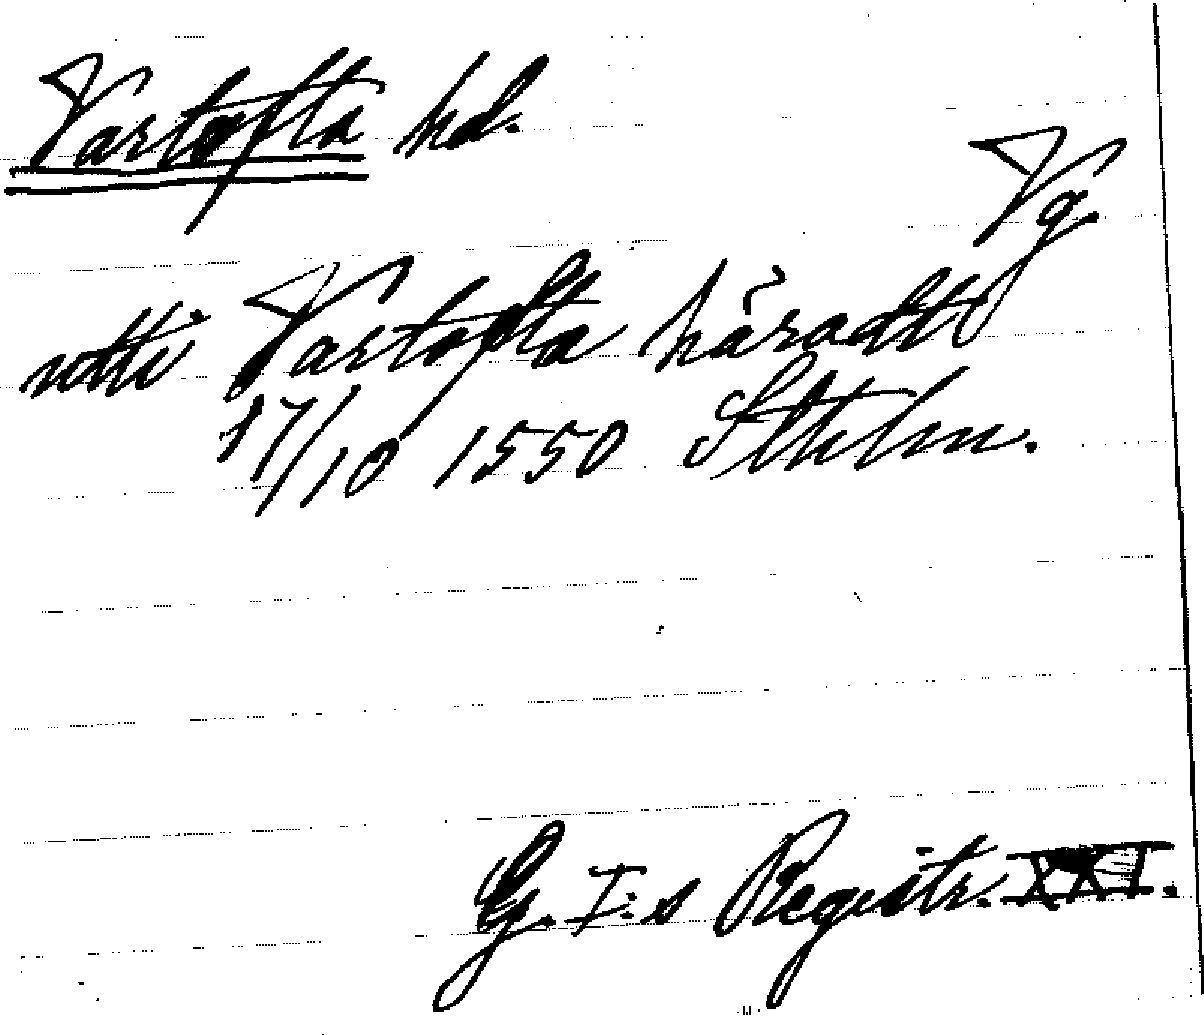 Vartofta hd.
Vg.
utti Vartofta häradtt
17/10 1550 Sthlm.
G. I:s Registr. XXI.